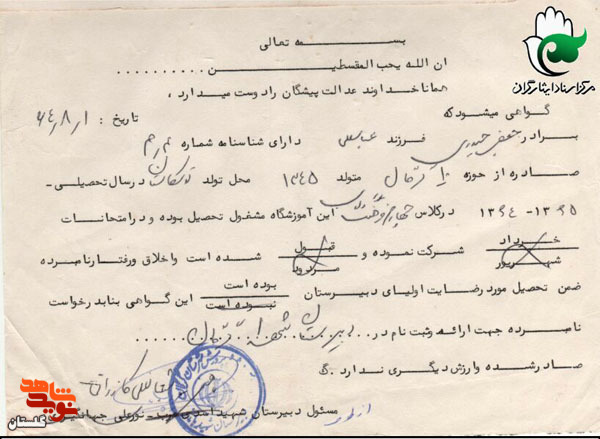 بسمه تعالی
ان الله یحب المقسطین..........
همانا خداوند عدالت پیشگان را دوست میدارد،
گواهی میشود که
تاریخ: ۶۴٫۸٫۱
برادر جعفر حیدری فرزند عباسعلی دارای شناسنامه شماره
صادره از حوزه متولد ۱۳۴۵ محل تولد در سال تحصیلی-
۱۳۶۴-۱۳۶۵ در کلاس چهارم این آموزشگاه مشغول تحصیل بوده و در امتحانات
خرداد
شهریور
شرکت نموده و
قبول
مردود
شده است و اخلاق و رفتار نامبرده
ضمن تحصیل مورد رضایت اولیای دبیرستان
بوده است
نبوده است
این گواهی بنا بدرخواست
نامبرده جهت ارائه و ثبت نام در
صادر شده و ارزش دیگری ندارد.
مسئول دبیرستان شهید
مرکز اسناد ایثارگران
نوید شاهد
گلستان